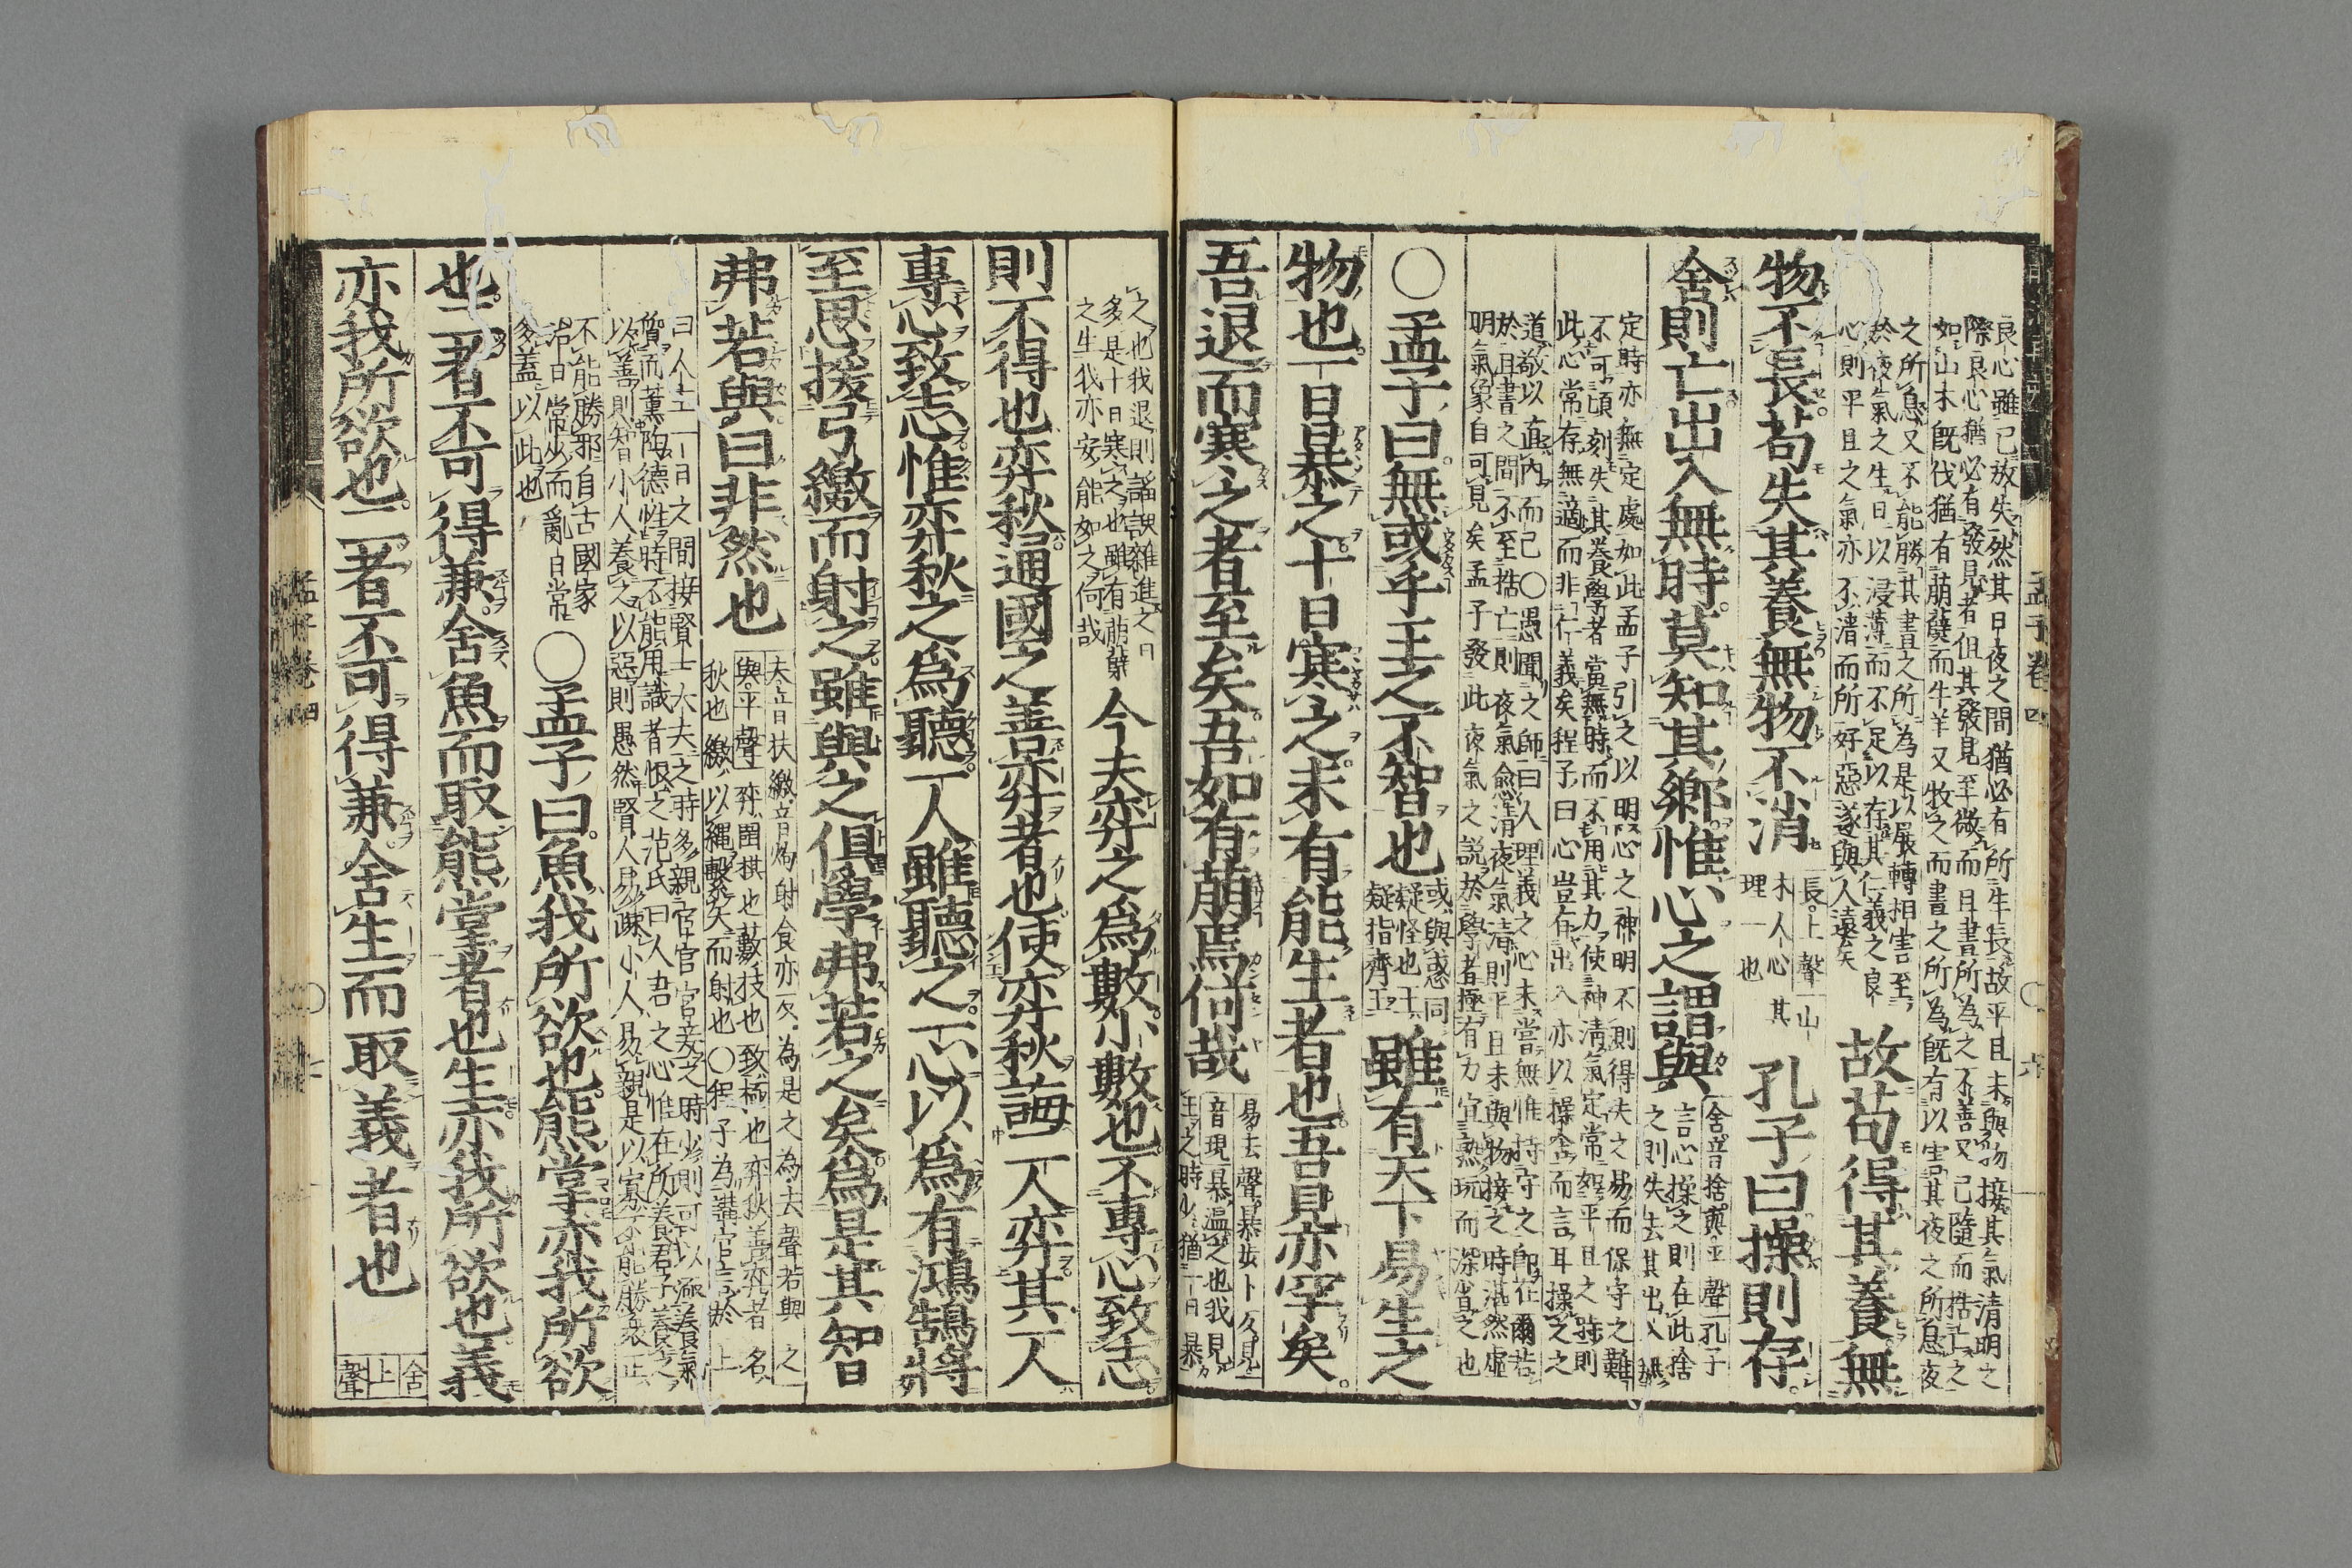 良心雖已放失然其日夜之間猶必有所生長故平旦未與物接其氣清明之
際良心猶必有發見者但其發見至微而旦晝所為之不善又已隨而梏亡之
如山木既伐猶有萌蘗而牛羊又牧之而晝之所為既有以害其夜之所息夜
之所息又不能勝其晝之所為是以展轉相害至
於夜氣之生日以浸薄而不足以存其仁義之良
心則平旦之氣亦不清而所好惡遂與人遠矣
故苟得其養無
物不長苟失其養無物不消
長上聲山
木人心其
理一也
孔子曰操則存
舍則亡出入無時莫知其鄉惟心之謂與
舍音捨與平聲孔子
言心操之則在此捨
之則失去其出入無
定時亦無定處如此孟子引之以明心之神明不測得失之易而保守之難
不可頃刻失其養學者當無時而不用其力使神清氣定常如平旦之時則
此心常存無適而非仁義矣程子曰心豈有出入亦以操舍而言耳操之之
道敬以直內而已○愚聞之師曰人理義之心未嘗無惟持守之即在爾若
於旦晝之間不至梏亡則夜氣愈清夜氣清則平旦未與物接之時湛然虛
明氣象自可見矣孟子發此夜氣之說於學者極有力宜熟玩而深省之也
○孟子曰無或乎王之不智也
或與惑同
疑怪也王
疑指齊王
雖有天下易生之
物也一日暴之十日寒之未有能生者也吾見亦罕矣
吾退而寒之者至矣吾如有萌焉何哉
易去聲暴步卜反見
音現暴溫之也我見
王之時少猶一日暴
之也我退則諂諛雜進之日
多是十日寒之也雖有萌蘗
之生我亦安能如之何哉
今夫弈之為數小數也不專心致志
則不得也弈秋通國之善弈者也使弈秋誨二人弈其一人
專心致志惟弈秋之為聽一人雖聽之一心以為有鴻鵠將
至思援弓繳而射之雖與之俱學弗若之矣為是其智
弗若與曰非然也
夫音扶繳音灼射食亦反為是之為去聲若與之
與平聲弈圍棋也數技也致極也弈秋善弈者名
秋也繳以繩繫矢而射也○程子為講官言於上
曰人主一日之間接賢士大夫之時多親宦官宮妾之時少則可以涵養氣
質而薰陶德性時不能用識者恨之范氏曰人君之心惟在所養君子養之
以善則智小人養之以惡則愚然賢人易疎小人易親是以寡不能勝衆正
不能勝邪自古國家
治日常少而亂日常
多蓋以此也
○孟子曰魚我所欲也熊掌亦我所欲
也二者不可得兼舍魚而取熊掌者也生亦我所欲也義
亦我所欲也二者不可得兼舍生而取義者也
舍
上
聲
孟子卷四